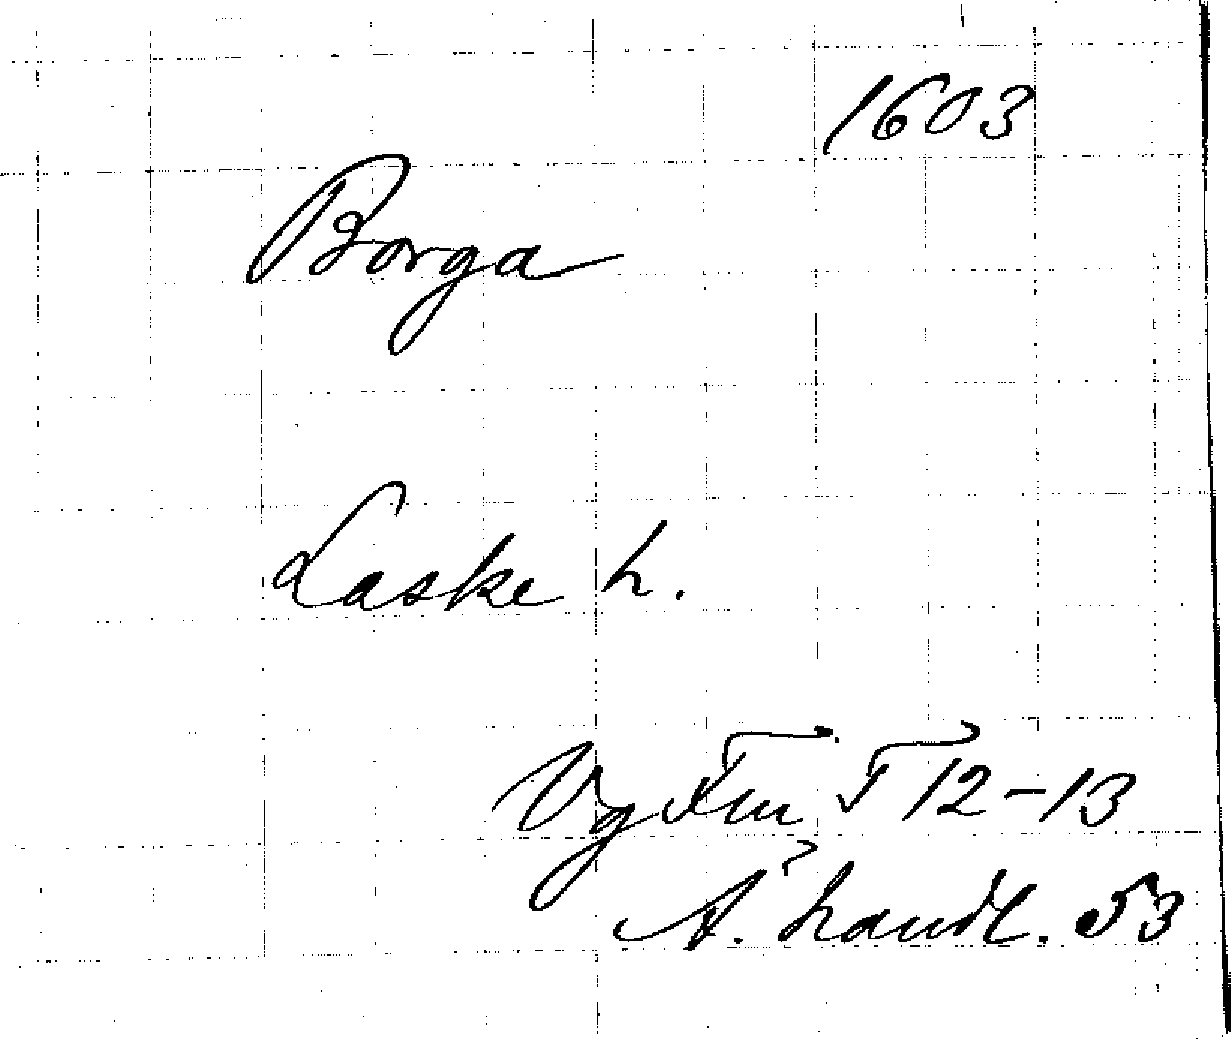 1603
Borga
Laske h.
Vg Fm T 12-13
A. handl. 53